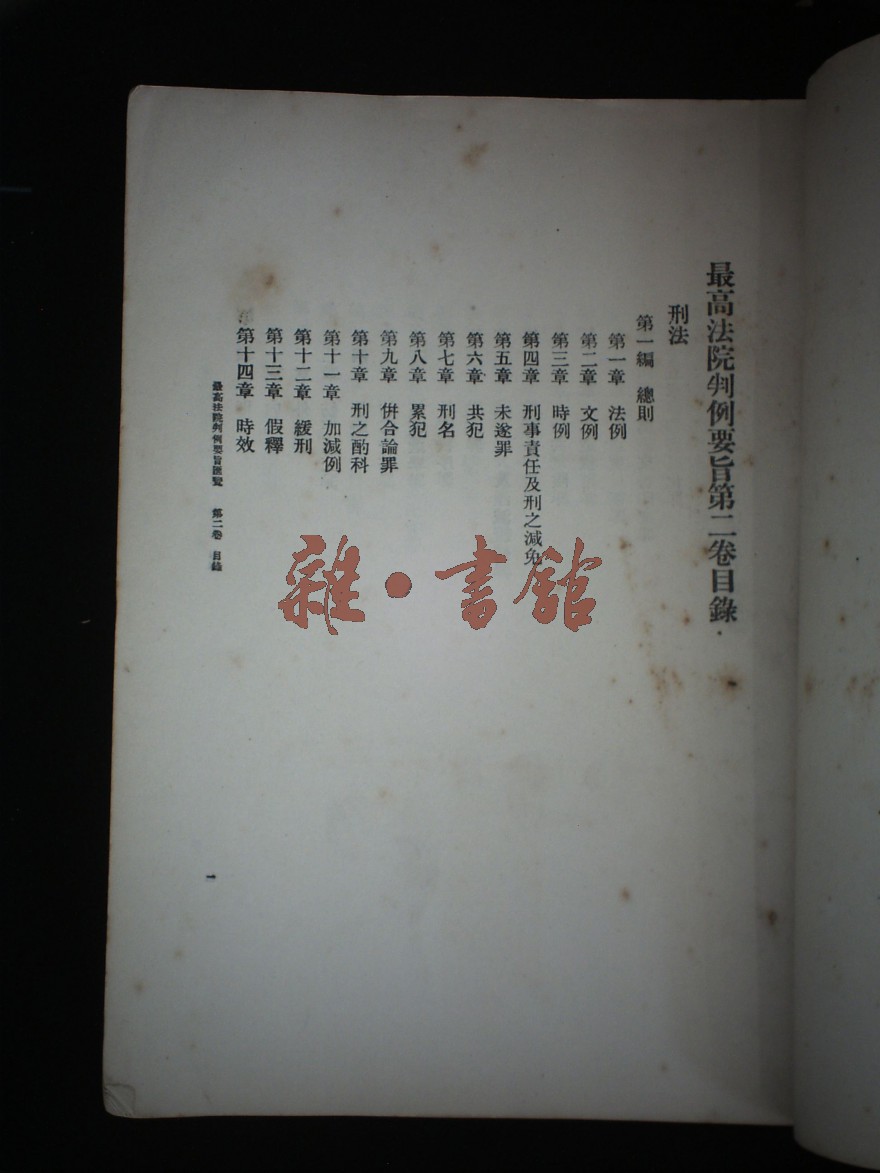 最高法院判例要旨第二卷目錄
刑法
第一編 總則
第一章 法例
第二章 文例
第三章 時例
第四章 刑事責任及刑之減免
第五章 未遂罪
第六章 共犯
第七章 刑名
第八章 累犯
第九章 併合論罪
第十章 刑之酌科
第十一章 加減例
第十二章 緩刑
第十三章 假釋
第十四章 時效
最高法院判例要旨匯覽 第二卷 目錄
一
雜·書館